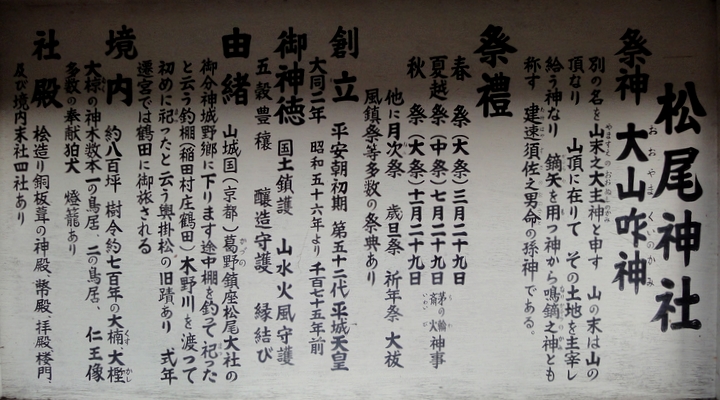 松尾神社
祭神 大山咋神
おおやまくいのかみ
別の名を山末之大主神と申す 山の末は山の
頂なり 山頂に在りて その土地を主宰し
給う神なり 鏑矢を用つ神から鳴鏑之神とも
称す 建速須佐之男命の孫神である。
祭禮
春 祭(大祭)三月二十九日
夏越 祭(中祭)七月二十九日
秋 祭(大祭)十一月二十九日
茅の輪 神事
斎火
他に月次祭 歳旦祭 祈年祭 大祓
風鎮祭等多数の祭典あり
御神徳 国土鎮護 山水火風守護
五穀豊穣 醸造守護 縁結び
創立 平安朝初期 第五十二代 平城天皇
大同二年 昭和五十六年より千百七十五年前
由緒 山城国(京都)葛野鎮座松尾大社の
御分神城野郷に下ります途中棚を釣って祀った
と云う釣棚(稲田村庄鶴田)木野川を渡って
初めに祀ったと云う輿掛松の旧蹟あり 式年
遷宮では鶴田に御旅される
境内 約八百坪 樹令約七百年の大楠、大樫
大椋の神木数本 一の鳥居、二の鳥居、仁王像
多数の奉献狛犬 燈籠あり
社殿 桧造り銅板葺の神殿、幣殿、拝殿楼門、
及び境内末社四社あり